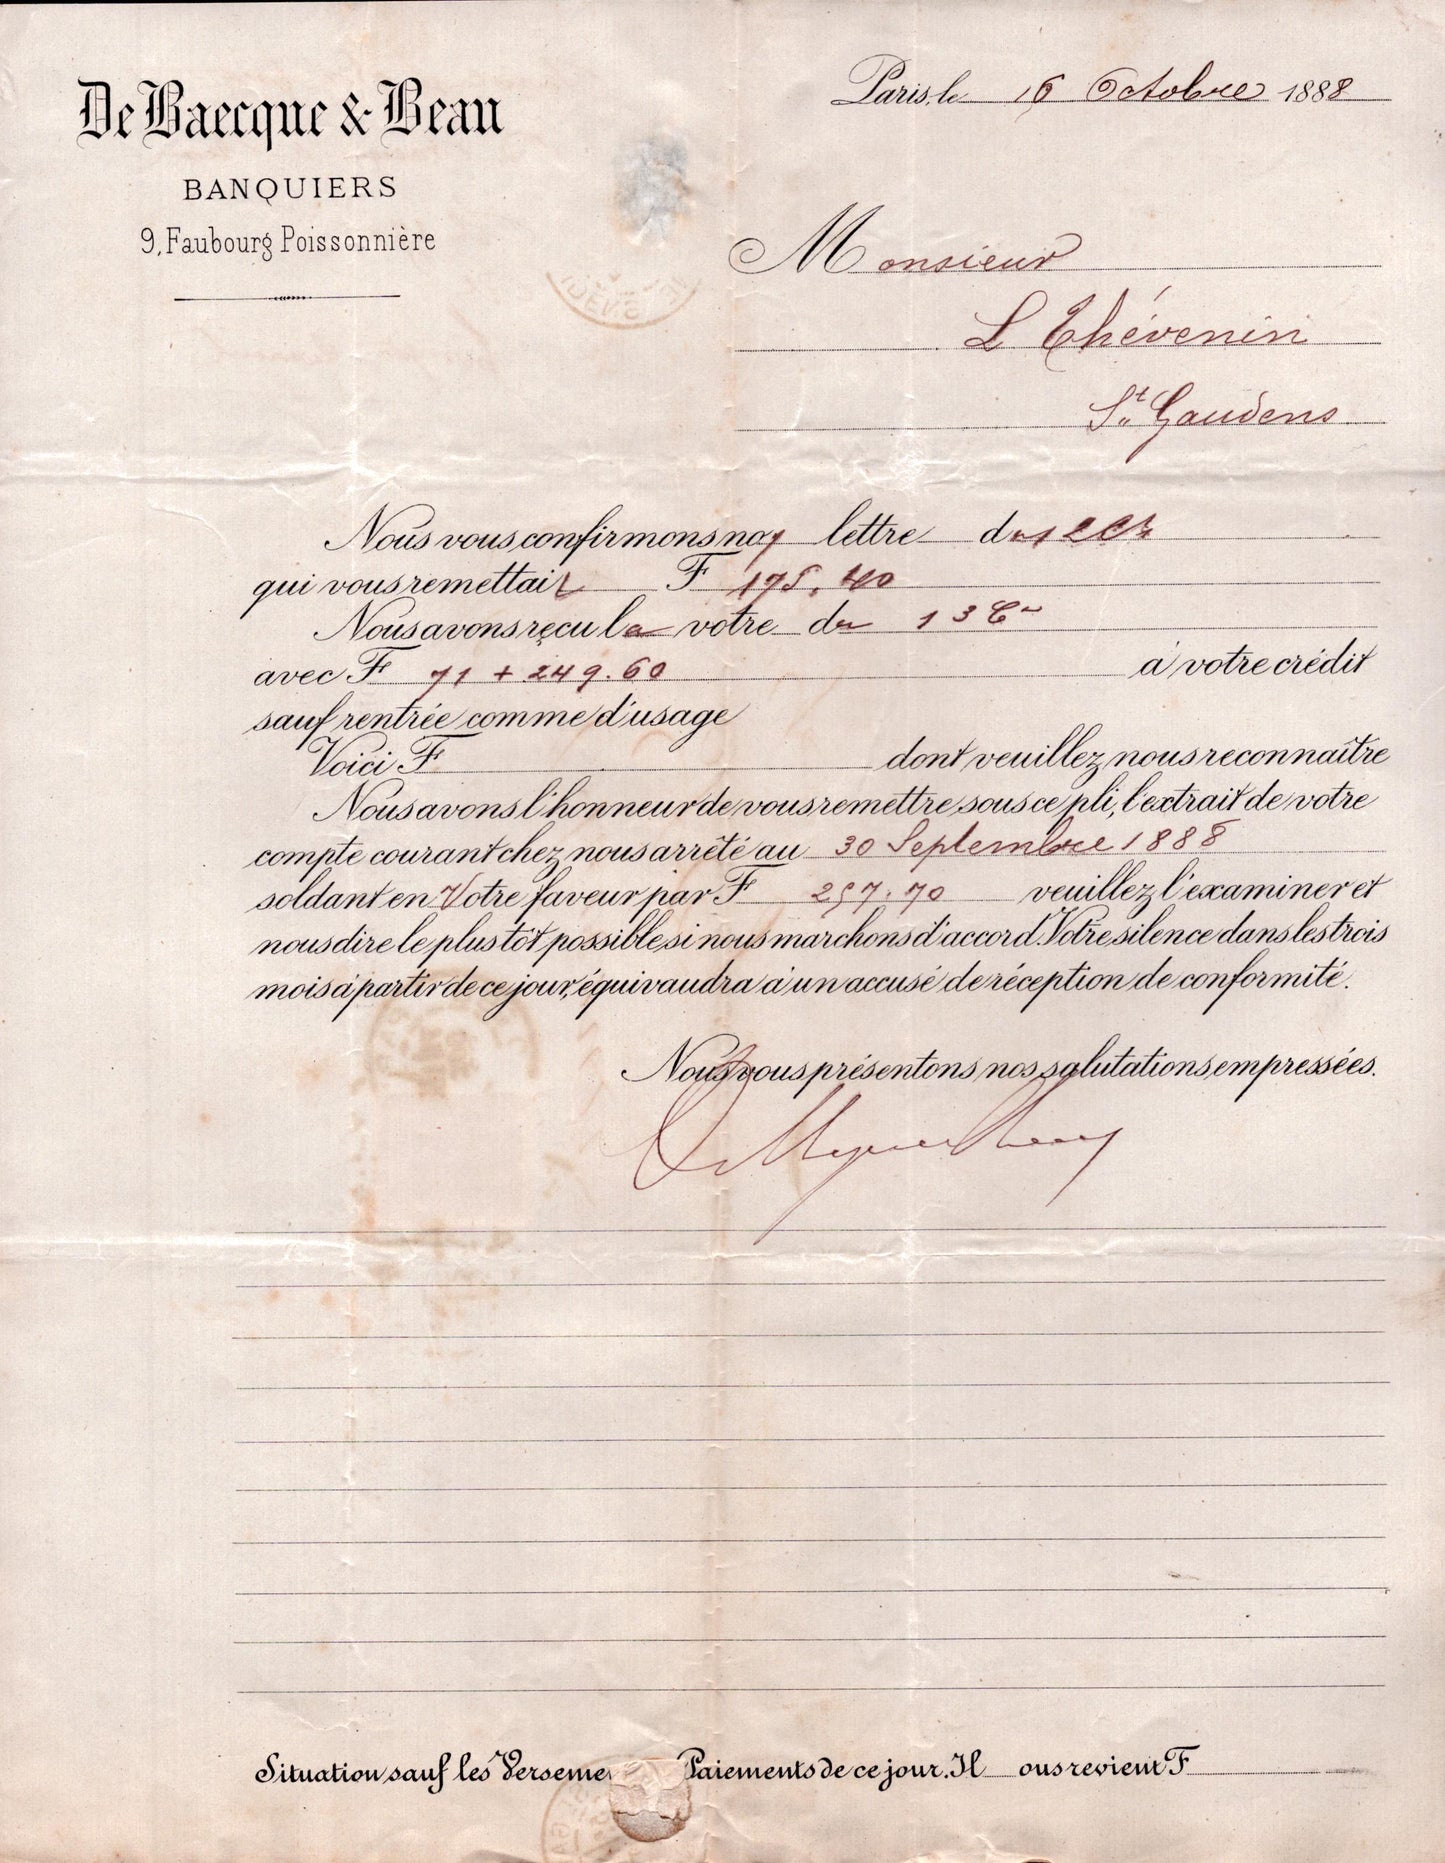 De Baecque & Beau
BANQUIERS
9, Faubourg Poissonnière
Paris, le 16 Octobre 1888
Monsieur
L Thévenin
St Gaudens
Nous vous confirmons no lettre du 12
qui vous remettait F 175.40
Nous avons reçu la votre du 13 Ct
avec F 71 + 249.60 à votre crédit
sauf rentrée comme d'usage
Voici F dont veuillez nous reconnaître
Nous avons l'honneur de vous remettre sous ce pli, l'extrait de votre
compte courant chez nous arrêté au 30 Septembre 1888
soldant en Votre faveur par F 257.70 veuillez l'examiner et
nous dire le plus tôt possible, si nous marchons d'accord. Votre silence dans les trois
mois à partir de ce jour, équivaudra à un accusé de réception de conformité.
Nous vous présentons nos salutations empressées.
Situation sauf les Verseme Paiements de ce jour. Il ous revient F